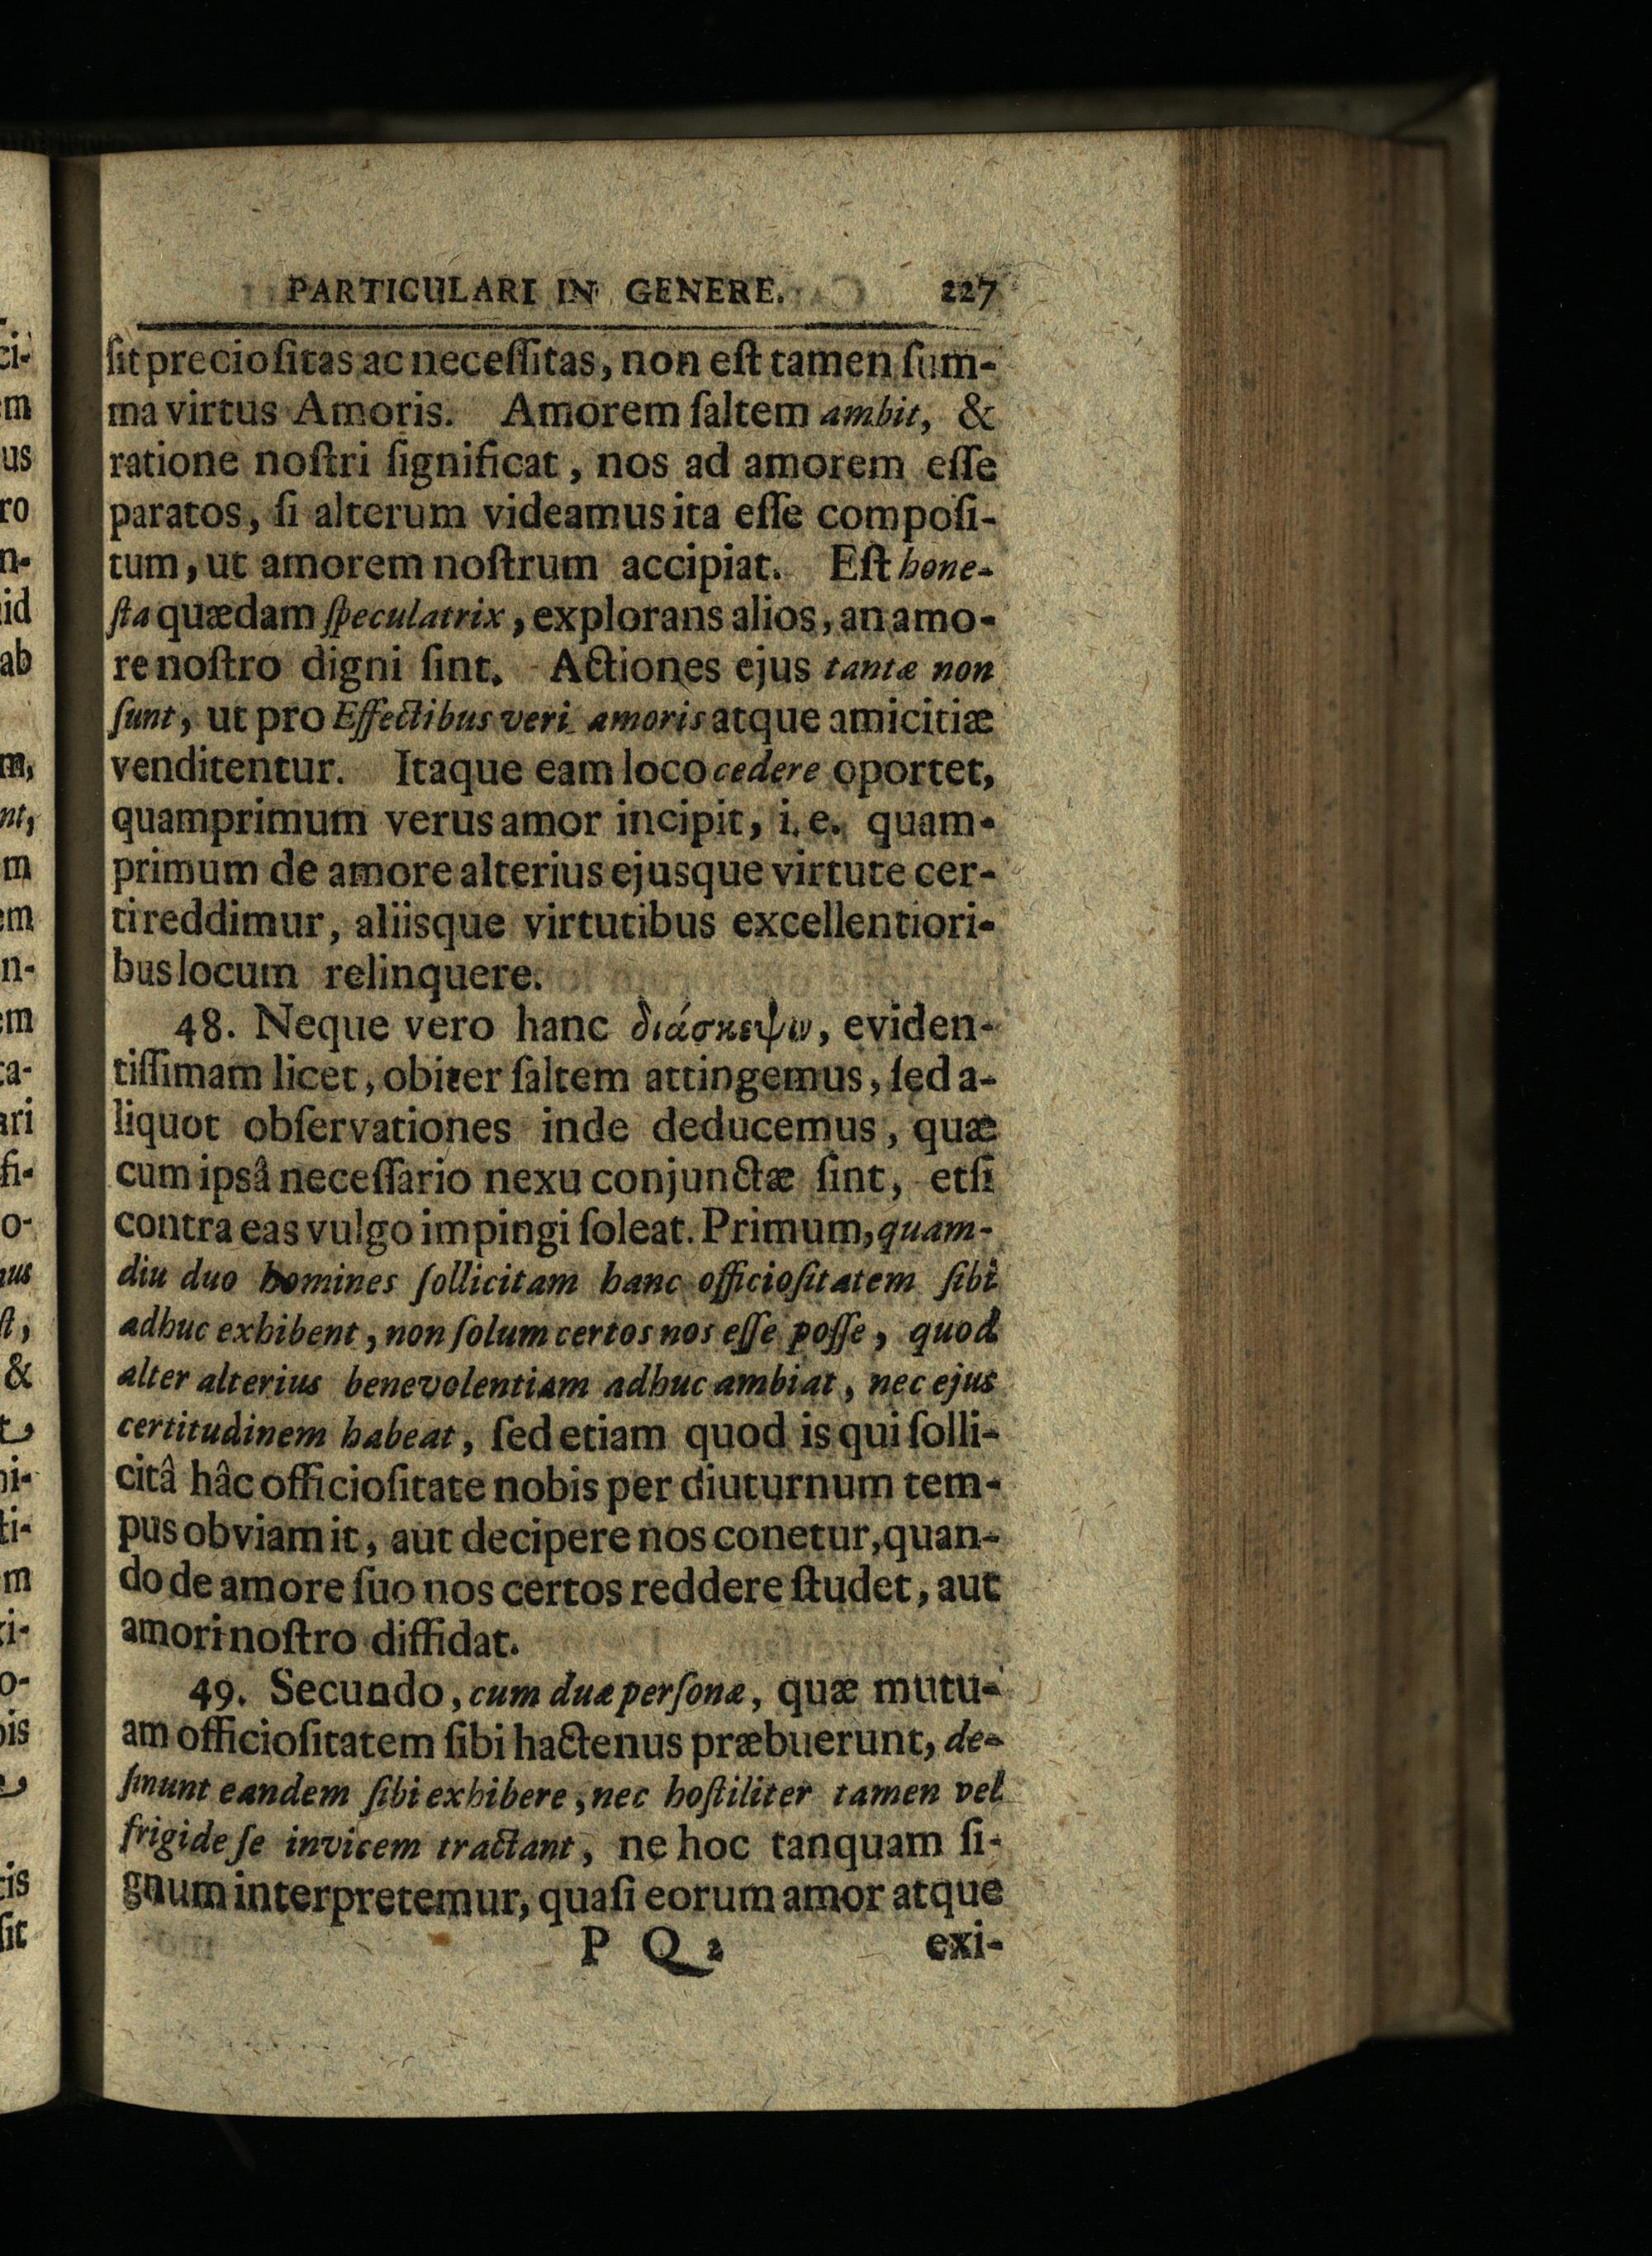 PARTICULARI IN GENERE. 227
ſit precioſitas ac neceſſitas, non eſt tamen ſum-
ma virtus Amoris. Amorem ſaltem ambit, &
ratione noſtri ſignificat, nos ad amorem eſſe
paratos, ſi alterum videamus ita eſſe compoſi-
tum, ut amorem noſtrum accipiat. Eſt hone-
ſta quædam ſpeculatrix, explorans alios, an amo-
re noſtro digni ſint. Actiones ejus tantæ non
ſunt, ut pro Effectibus veri amoris atque amicitiæ
venditentur. Itaque eam loco cedere oportet,
quamprimum verus amor incipit, i. e. quam-
primum de amore alterius ejusque virtute cer-
ti reddimur, aliisque virtutibus excellentiori-
bus locum relinquere.
48. Neque vero hanc διάσκεψιν, eviden-
tiſſimam licet, obiter ſaltem attingemus, ſed a-
liquot obſervationes inde deducemus, quæ
cum ipsâ neceſſario nexu conjunctæ ſint, etſi
contra eas vulgo impingi ſoleat. Primum, quam-
diu duo homines ſollicitam hanc officioſitatem ſibi
adhuc exhibent, non ſolum certos nos eſſe poſſe, quod
alter alterius benevolentiam adhuc ambiat, nec ejus
certitudinem habeat, ſed etiam quod is qui ſolli-
citâ hâc officioſitate nobis per diuturnum tem-
pus obviam it, aut decipere nos conetur, quan-
do de amore ſuo nos certos reddere ſtudet, aut
amori noſtro diffidat.
49. Secundo, cum duæ perſonæ, quæ mutu-
am officioſitatem ſibi hactenus præbuerunt, de-
ſinunt eandem ſibi exhibere, nec hoſtiliter tamen vel
frigide ſe invicem tractant, ne hoc tanquam ſi-
gnum interpretemur, quaſi eorum amor atque
P Q 2 exi-